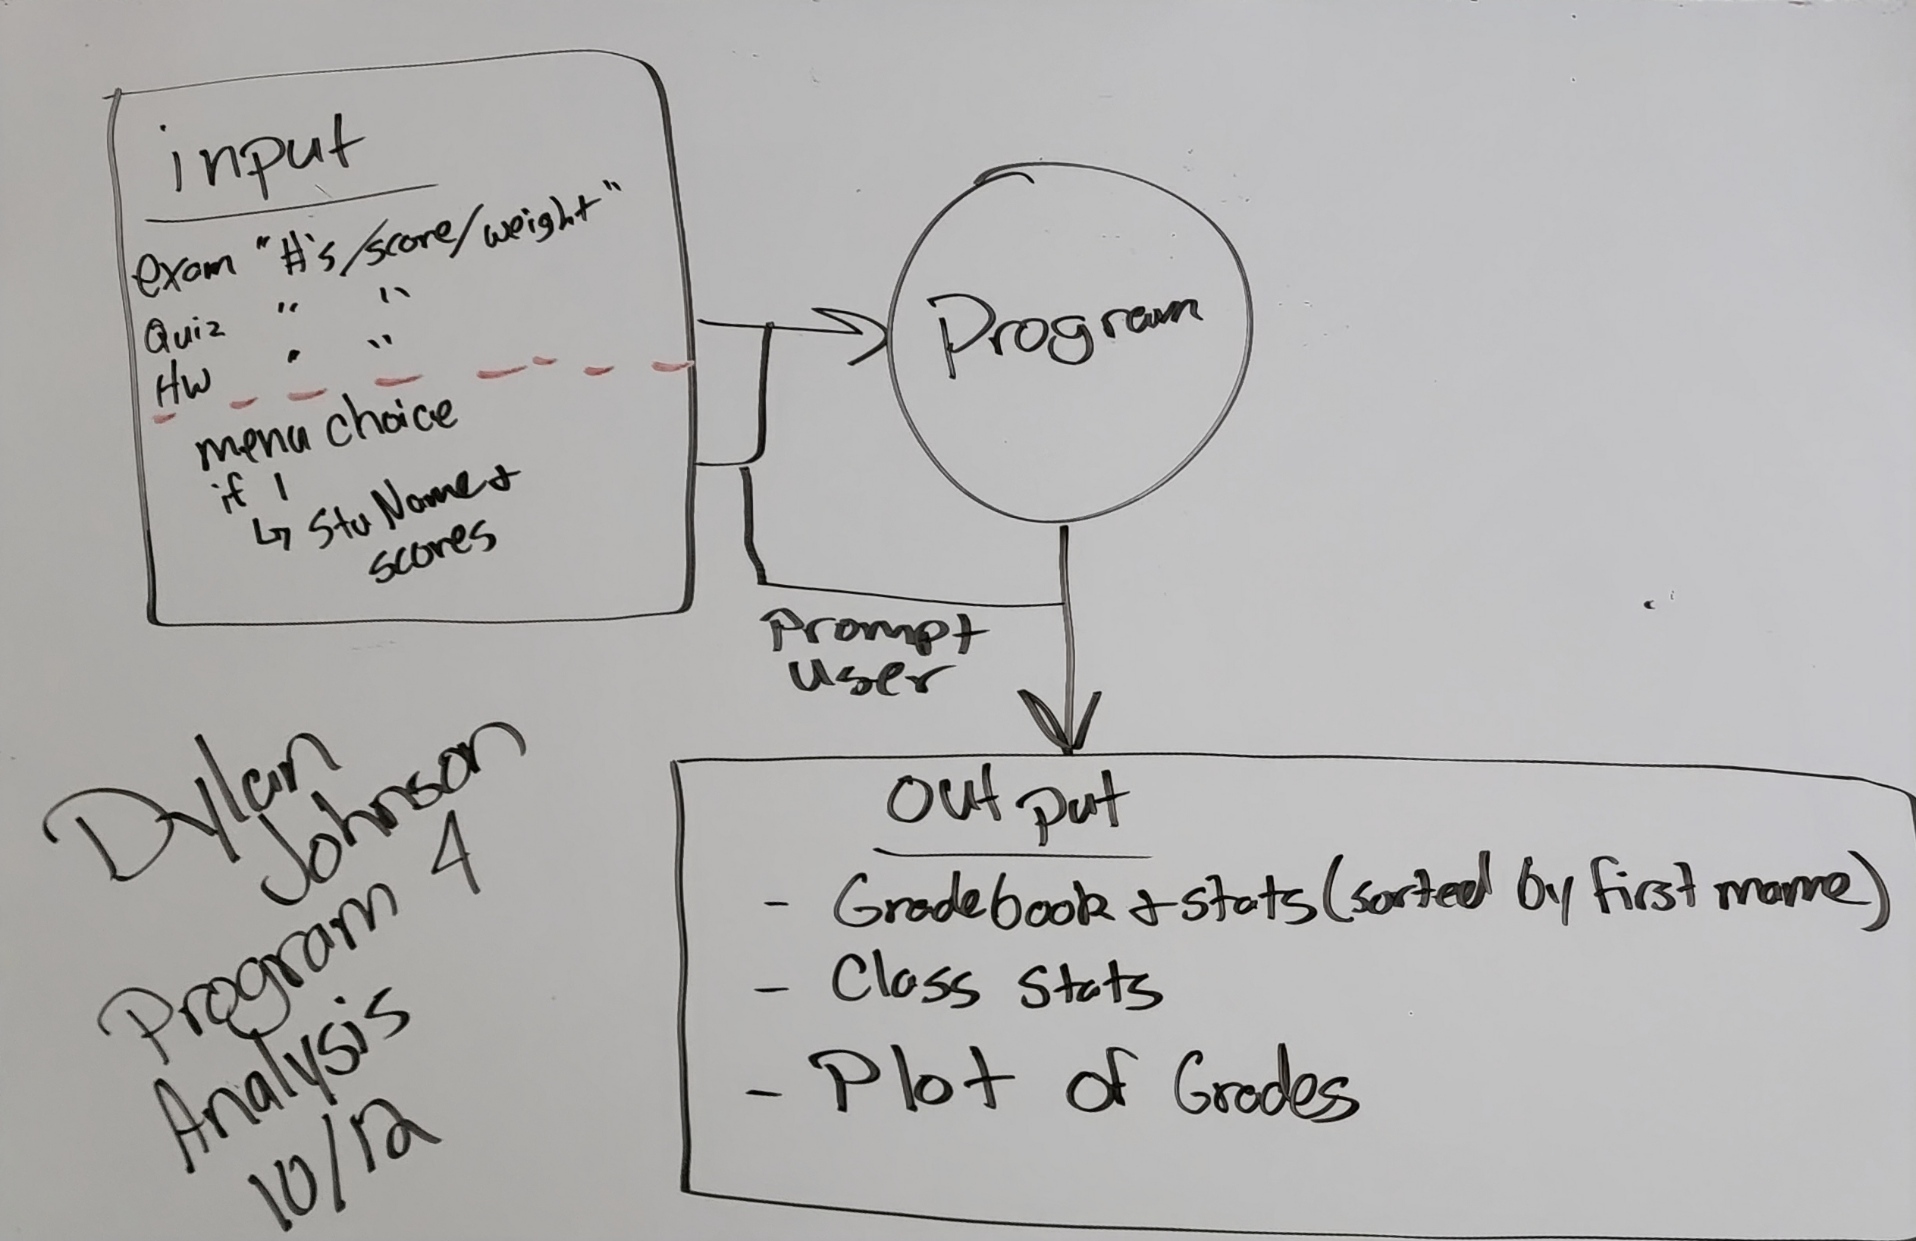 input
exam "#'s/score/weight"
Quiz " "
HW " "
menu choice
if 1
↳ Stu Name +
scores
Program
Prompt
User
Output
- Gradebook + stats (sorted by first name)
- Class Stats
- Plot of Grades
Dylan
Johnson
Program 4
Analysis
10/12